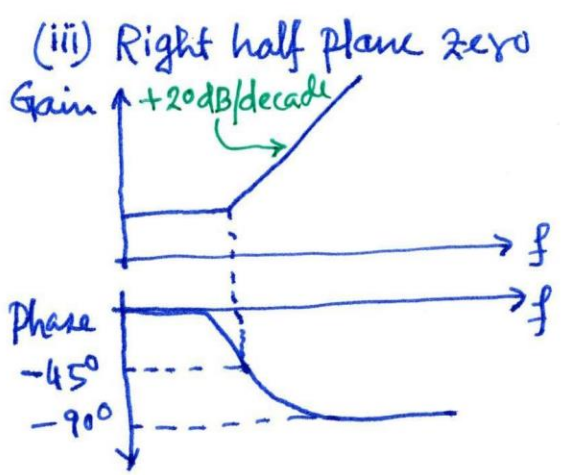 (iii) Right half plane zero
Gain
+20dB/decade
f
f
Phase
-45°
-90°